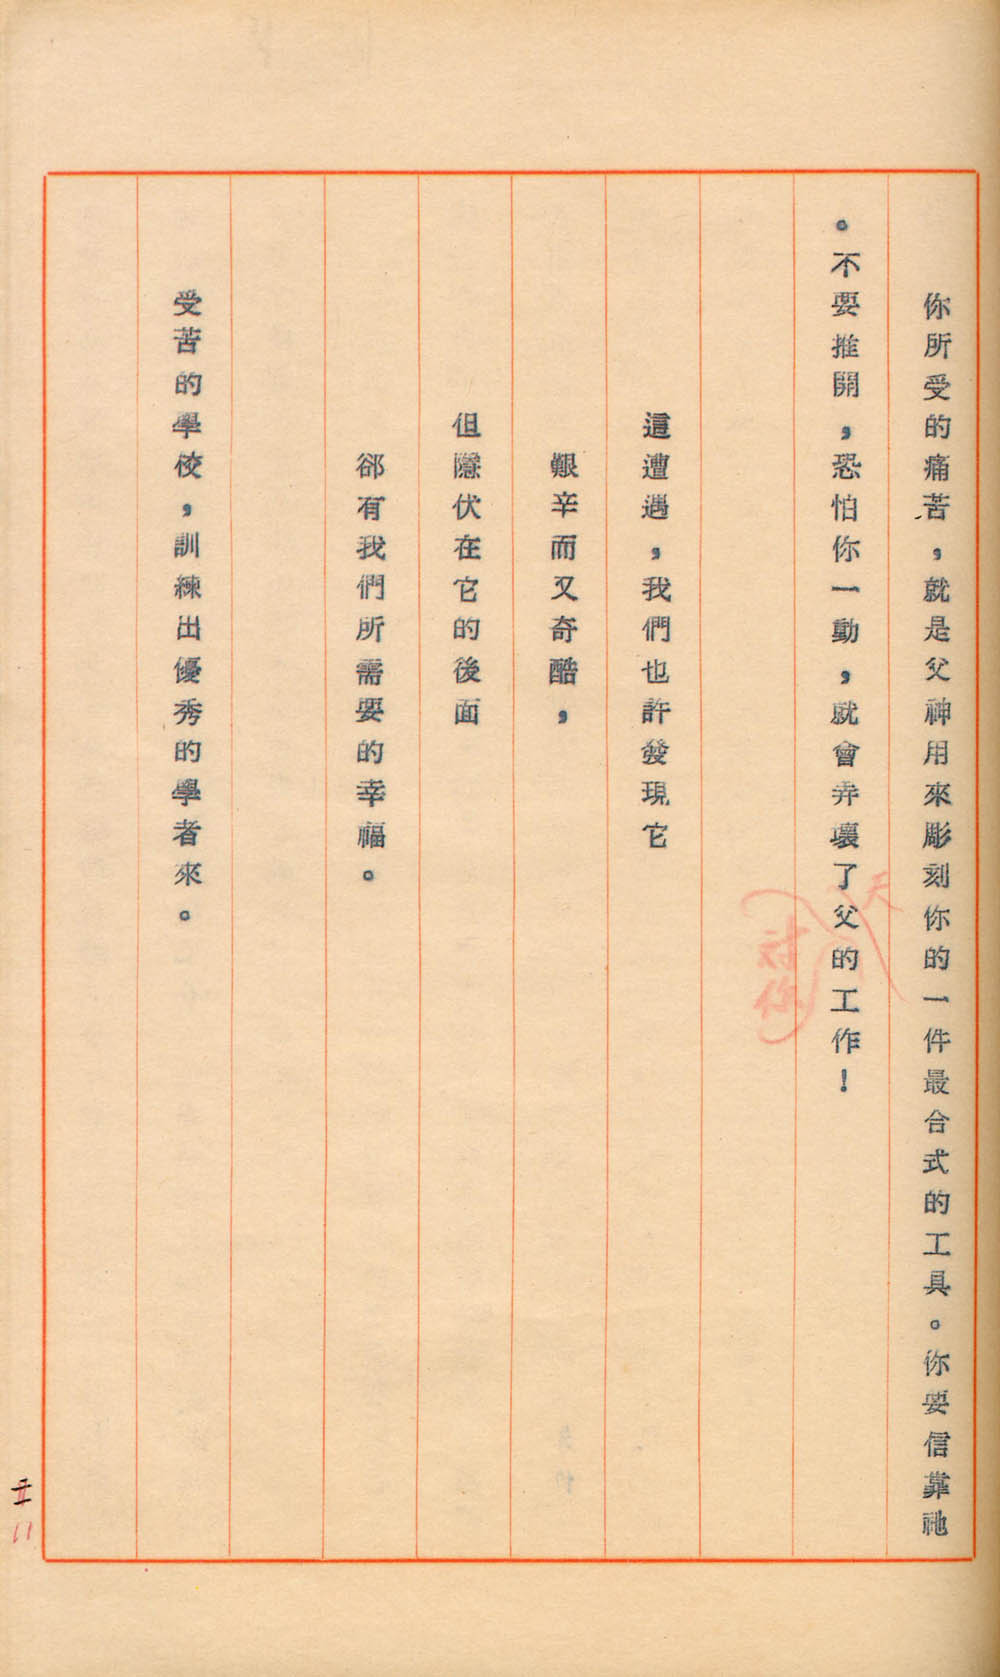 你所受的痛苦，就是父神用來彫刻你的一件最合式的工具。你要信靠祂
。不要推開，恐怕你一動，就會弄壞了父的工作！
天
對你
這遭遇，我們也許發現它
艱辛而又奇酷，
但隱伏在它的後面
卻有我們所需要的幸福。
受苦的學校，訓練出優秀的學者來。
11